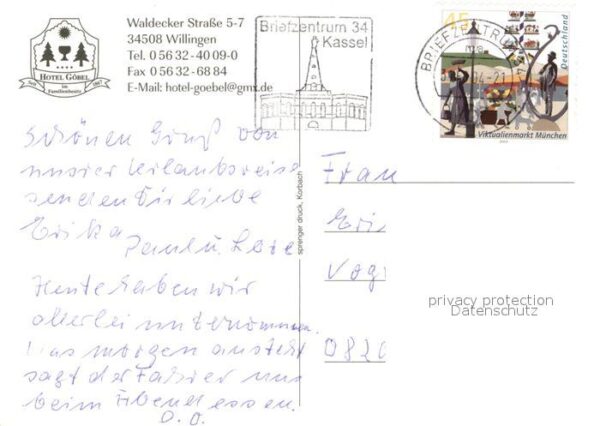 Waldecker Straße 5-7
34508 Willingen
Tel. 0 56 32 - 40 09-0
Fax 0 56 32 - 68 84
E-Mail: hotel-goebel@gmx.de
HOTEL GÖBEL
Seit
im
Familienbesitz
1867
Briefzentrum 34
Kassel
BRIEFZENTRUM
45
Deutschland
Viktualienmarkt München
Schönen Gruß von
unsrer Urlaubsreise
senden Dir liebe
Erika
Paul u. Lore
Heute haben wir
allerlei unternommen.
Was morgen ansteht
sagt der Fahrer uns
beim Abendessen.
sprenger druck, Korbach
Frau
Eri
Vog
082
privacy protection
Datenschutz